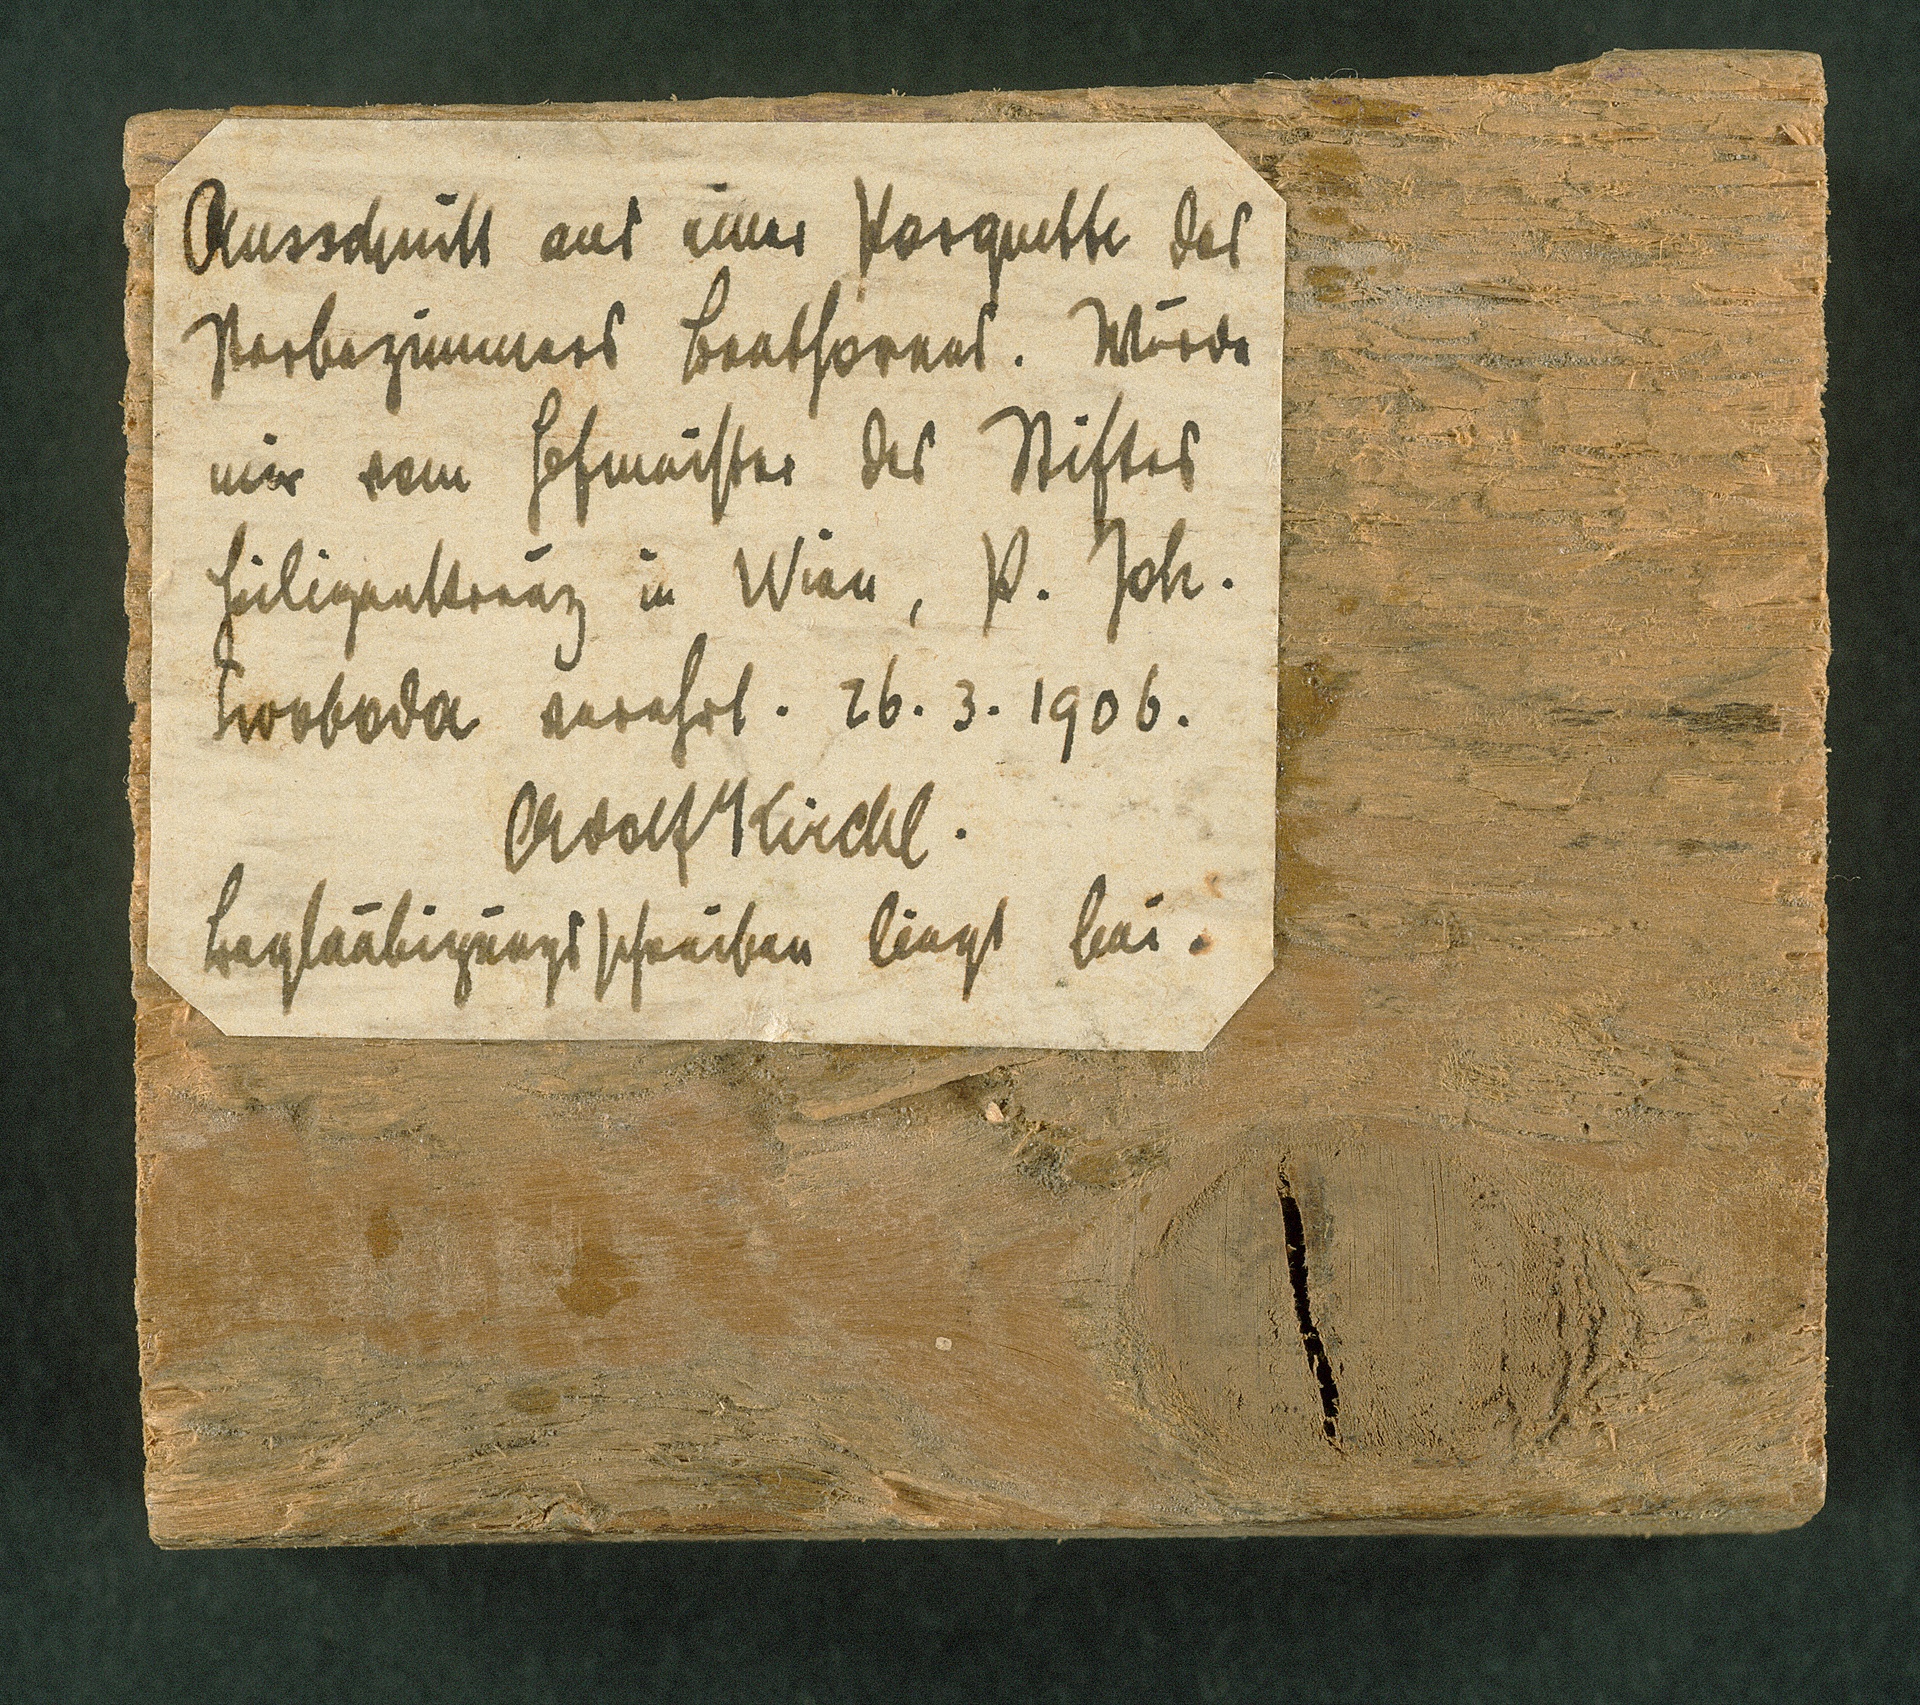 Ausschnitt aus einer Parquette des
Sterbezimmers Beethovens. Wurde
mir vom Hofmeister des Stiftes
Heiligenkreuz in Wien, P. Joh.
Swoboda verehrt. 26. 3. 1906.
Adolf Kirchl.
Beglaubigungsschreiben liegt bei.